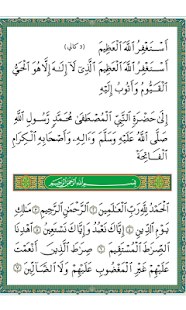 أَسْتَغْفِرُ اللهَ الْعَظِيْمَ (٣ كالي)
أَسْتَغْفِرُ اللهَ الْعَظِيْمَ الَّذِيْ لَا إِلٰهَ إِلَّا هُوَ الْحَيُّ
الْقَيُّوْمُ وَأَتُوْبُ إِلَيْهِ
إِلَى حَضْرَةِ النَّبِيِّ الْمُصْطَفَى مُحَمَّدٍ رَسُوْلِ اللهِ
صَلَّى اللهُ عَلَيْهِ وَسَلَّمَ وَءَالِهِ وَأَصْحَابِهِ الْكِرَامِ
الْفَاتِحَةْ
بِسْمِ اللهِ الرَّحْمٰنِ الرَّحِيْمِ
الْحَمْدُ لِلَّهِ رَبِّ الْعَـٰلَمِينَ ۝ الرَّحْمَـٰنِ الرَّحِيمِ ۝ مَـٰلِكِ
يَوْمِ الدِّينِ ۝ إِيَّاكَ نَعْبُدُ وَإِيَّاكَ نَسْتَعِينُ ۝ اهْدِنَا
الصِّرَاطَ الْمُسْتَقِيمَ ۝ صِرَاطَ الَّذِينَ أَنْعَمْتَ
عَلَيْهِمْ غَيْرِ الْمَغْضُوبِ عَلَيْهِمْ وَلَا الضَّالِّينَ ۝